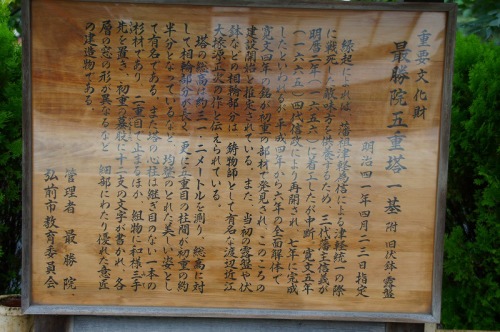 重要文化財
最勝院五重塔 一基 附 旧伏鉢・露盤
明治四一年四月二三日指定
縁起によれば、藩祖津軽為信による津軽統一の際
に戦死した敵味方を供養するため、三代藩主信義が
明暦二年(一六五六)に着工したが中断、寛文五年
(一六六五)四代信政により再開され、七年に完成
したといわれるが、平成四年から六年の全面解体で
寛文四年の銘が初重の部材で発見され、このころの
建設開始と推定されている。また、当初の露盤や伏
鉢などの相輪部分は、鋳物師として有名な渡辺近江
大掾源家次の作と伝えられている。
塔の総高は約三一・二メートルを測り、総高に対
して相輪部分が長く、更に五重目の柱間が初重の約
半分となっているなど、均整のとれた美しい姿とし
て有名である。また塔の心柱は継ぎ目のない一本の
杉材であり、二重目で止まるほか、組物に和様三手
先を置き、初重の蟇股に十二支の文字が書かれ、各
層の窓の形が異なるなど、細部にわたり優れた意匠
の建造物である。
管理者 最勝院
弘前市教育委員会